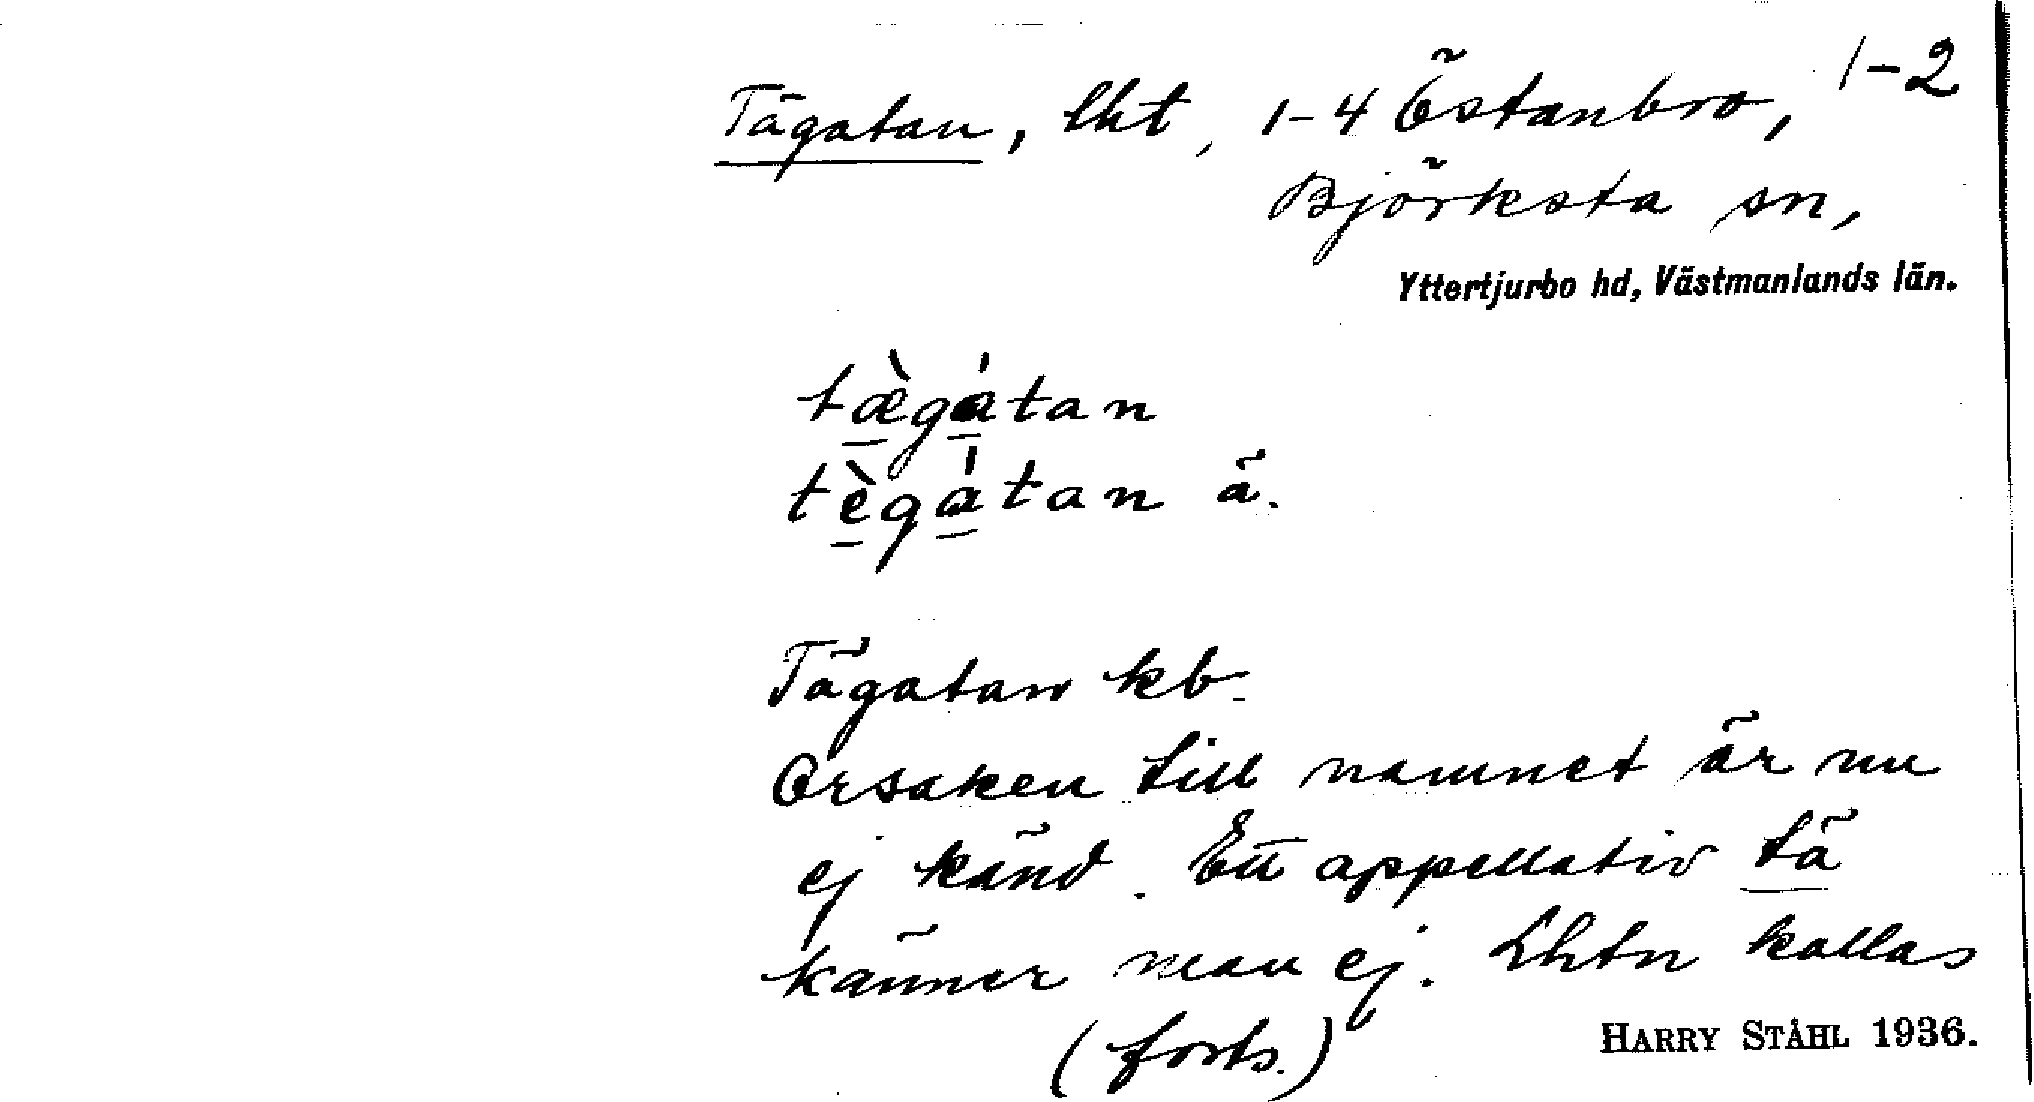 1-2
Tägatan, lht, 1-4 Östanbro,
Björksta sn,
Yttertjurbo hd, Västmanlands län.
tæ̀gátan
tègátan ä.
Tägatan kb.
Orsaken till namnet är nu
ej känd. Ett appellativ tä
känner man ej. Lhtn kallas
(forts.)
HARRY STÅHL 1936.